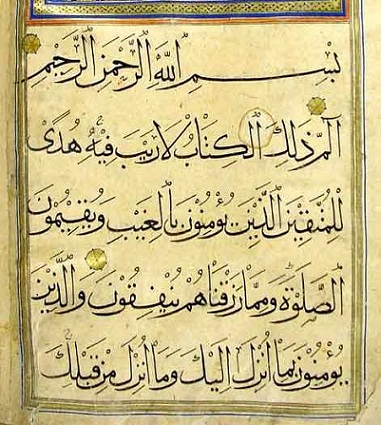 بِسْمِ اللَّهِ الرَّحْمَنِ الرَّحِيمِ
الم ذَلِكَ الْكِتَابُ لَا رَيْبَ فِيهِ هُدًى
لِلْمُتَّقِينَ الَّذِينَ يُؤْمِنُونَ بِالْغَيْبِ وَيُقِيمُونَ
الصَّلَوٰةَ وَمِمَّا رَزَقْنَاهُمْ يُنْفِقُونَ وَالَّذِينَ
يُؤْمِنُونَ بِمَا أُنْزِلَ إِلَيْكَ وَمَا أُنْزِلَ مِنْ قَبْلِكَ